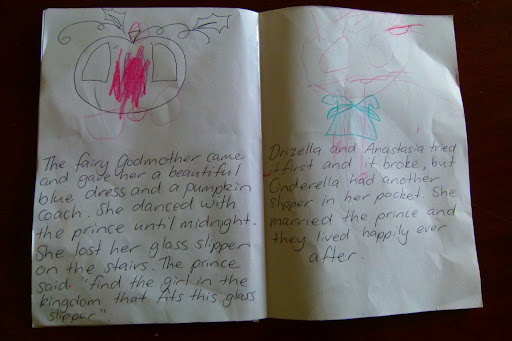 The fairy godmother came
and gave her a beautiful
blue dress and a pumpkin
coach. She danced with
the prince until midnight.
She lost her glass slipper
on the stairs. The prince
said "find the girl in the
kingdom that fits this glass
slipper".
Drizella and Anastasia tried
it first and it broke, but
Cinderella had another
slipper in her pocket. She
married the prince and
they lived happily ever
after.